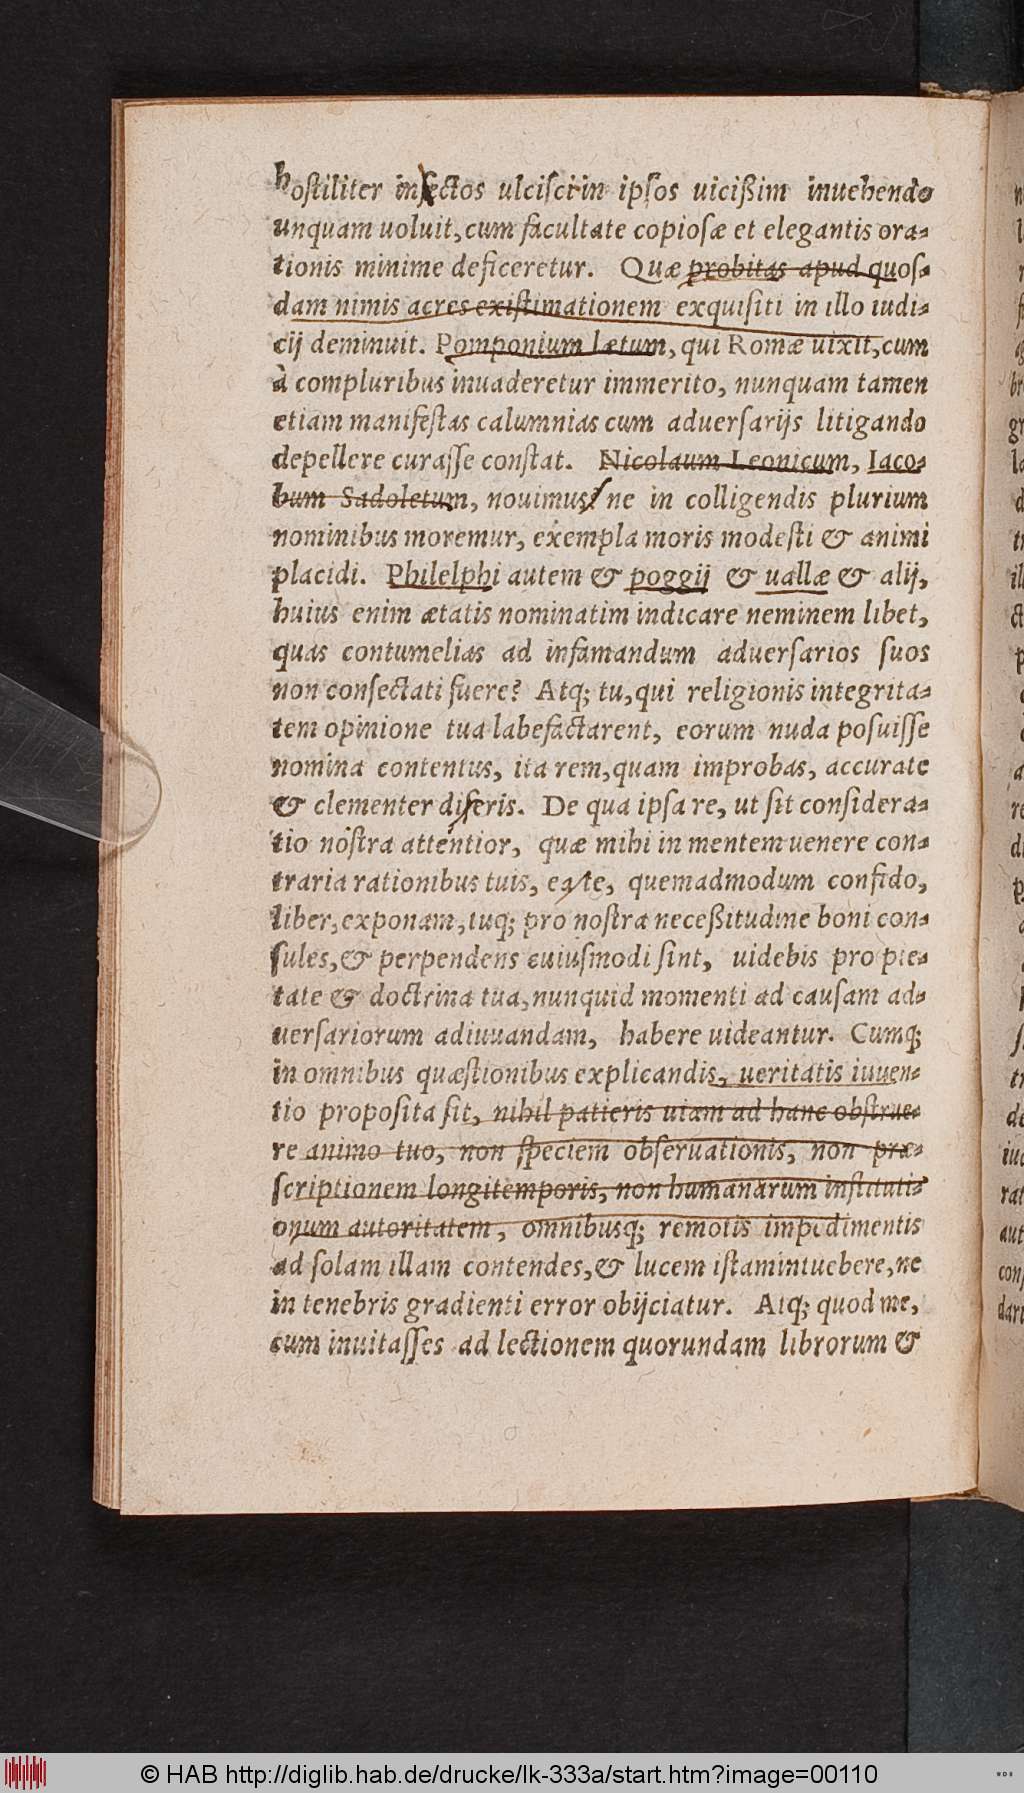 hostiliter insectos ulcisci in ipsos uicißim inuehendo
unquam uoluit, cum facultate copiosæ et elegantis ora-
tionis minime deficeretur. Quæ probitas apud quos-
dam nimis acres existimationem exquisiti in illo iudi-
cij deminuit. Pomponium Lætum, qui Romæ uixit, cum
à compluribus inuaderetur immerito, nunquam tamen
etiam manifestas calumnias cum aduersarijs litigando
depellere curasse constat. Nicolaum Leonicum, Iaco-
bum Sadoletum, nouimus, ne in colligendis plurium
nominibus moremur, exempla moris modesti & animi
placidi. Philelphi autem & poggij & uallæ & alij,
huius enim ætatis nominatim indicare neminem libet,
quas contumelias ad infamandum aduersarios suos
non consectati fuere? Atq; tu, qui religionis integrita-
tem opinione tua labefactarent, eorum nuda posuisse
nomina contentus, ita rem, quam improbas, accurate
& clementer diseris. De qua ipsa re, ut sit considera-
tio nostra attentior, quæ mihi in mentem uenere con-
traria rationibus tuis, ea te, quemadmodum confido,
liber, exponam, tuq; pro nostra neceßitudine boni con-
sules, & perpendens cuiusmodi sint, uidebis pro pie-
tate & doctrina tua, nunquid momenti ad causam ad-
uersariorum adiuuandam, habere uideantur. Cumq;
in omnibus quæstionibus explicandis, ueritatis inuen-
tio proposita sit, nihil patieris uiam ad hanc obstrue-
re animo tuo, non speciem obseruationis, non præ-
scriptionem longi temporis, non humanarum instituti-
onum autoritatem, omnibusq; remotis impedimentis
ad solam illam contendes, & lucem istam intuebere, ne
in tenebris gradienti error obijciatur. Atq; quod me,
cum inuitasses ad lectionem quorundam librorum &
© HAB http://diglib.hab.de/drucke/lk-333a/start.htm?image=00110